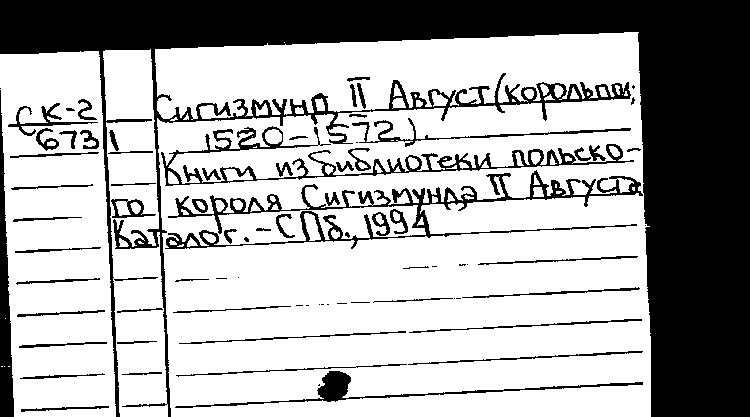 СК-2 Сигизмунд II Август (король
6731 1520-1572).
Книги из библиотеки польско-
го короля Сигизмунда II Августа.
Каталог. - СПб., 1994.